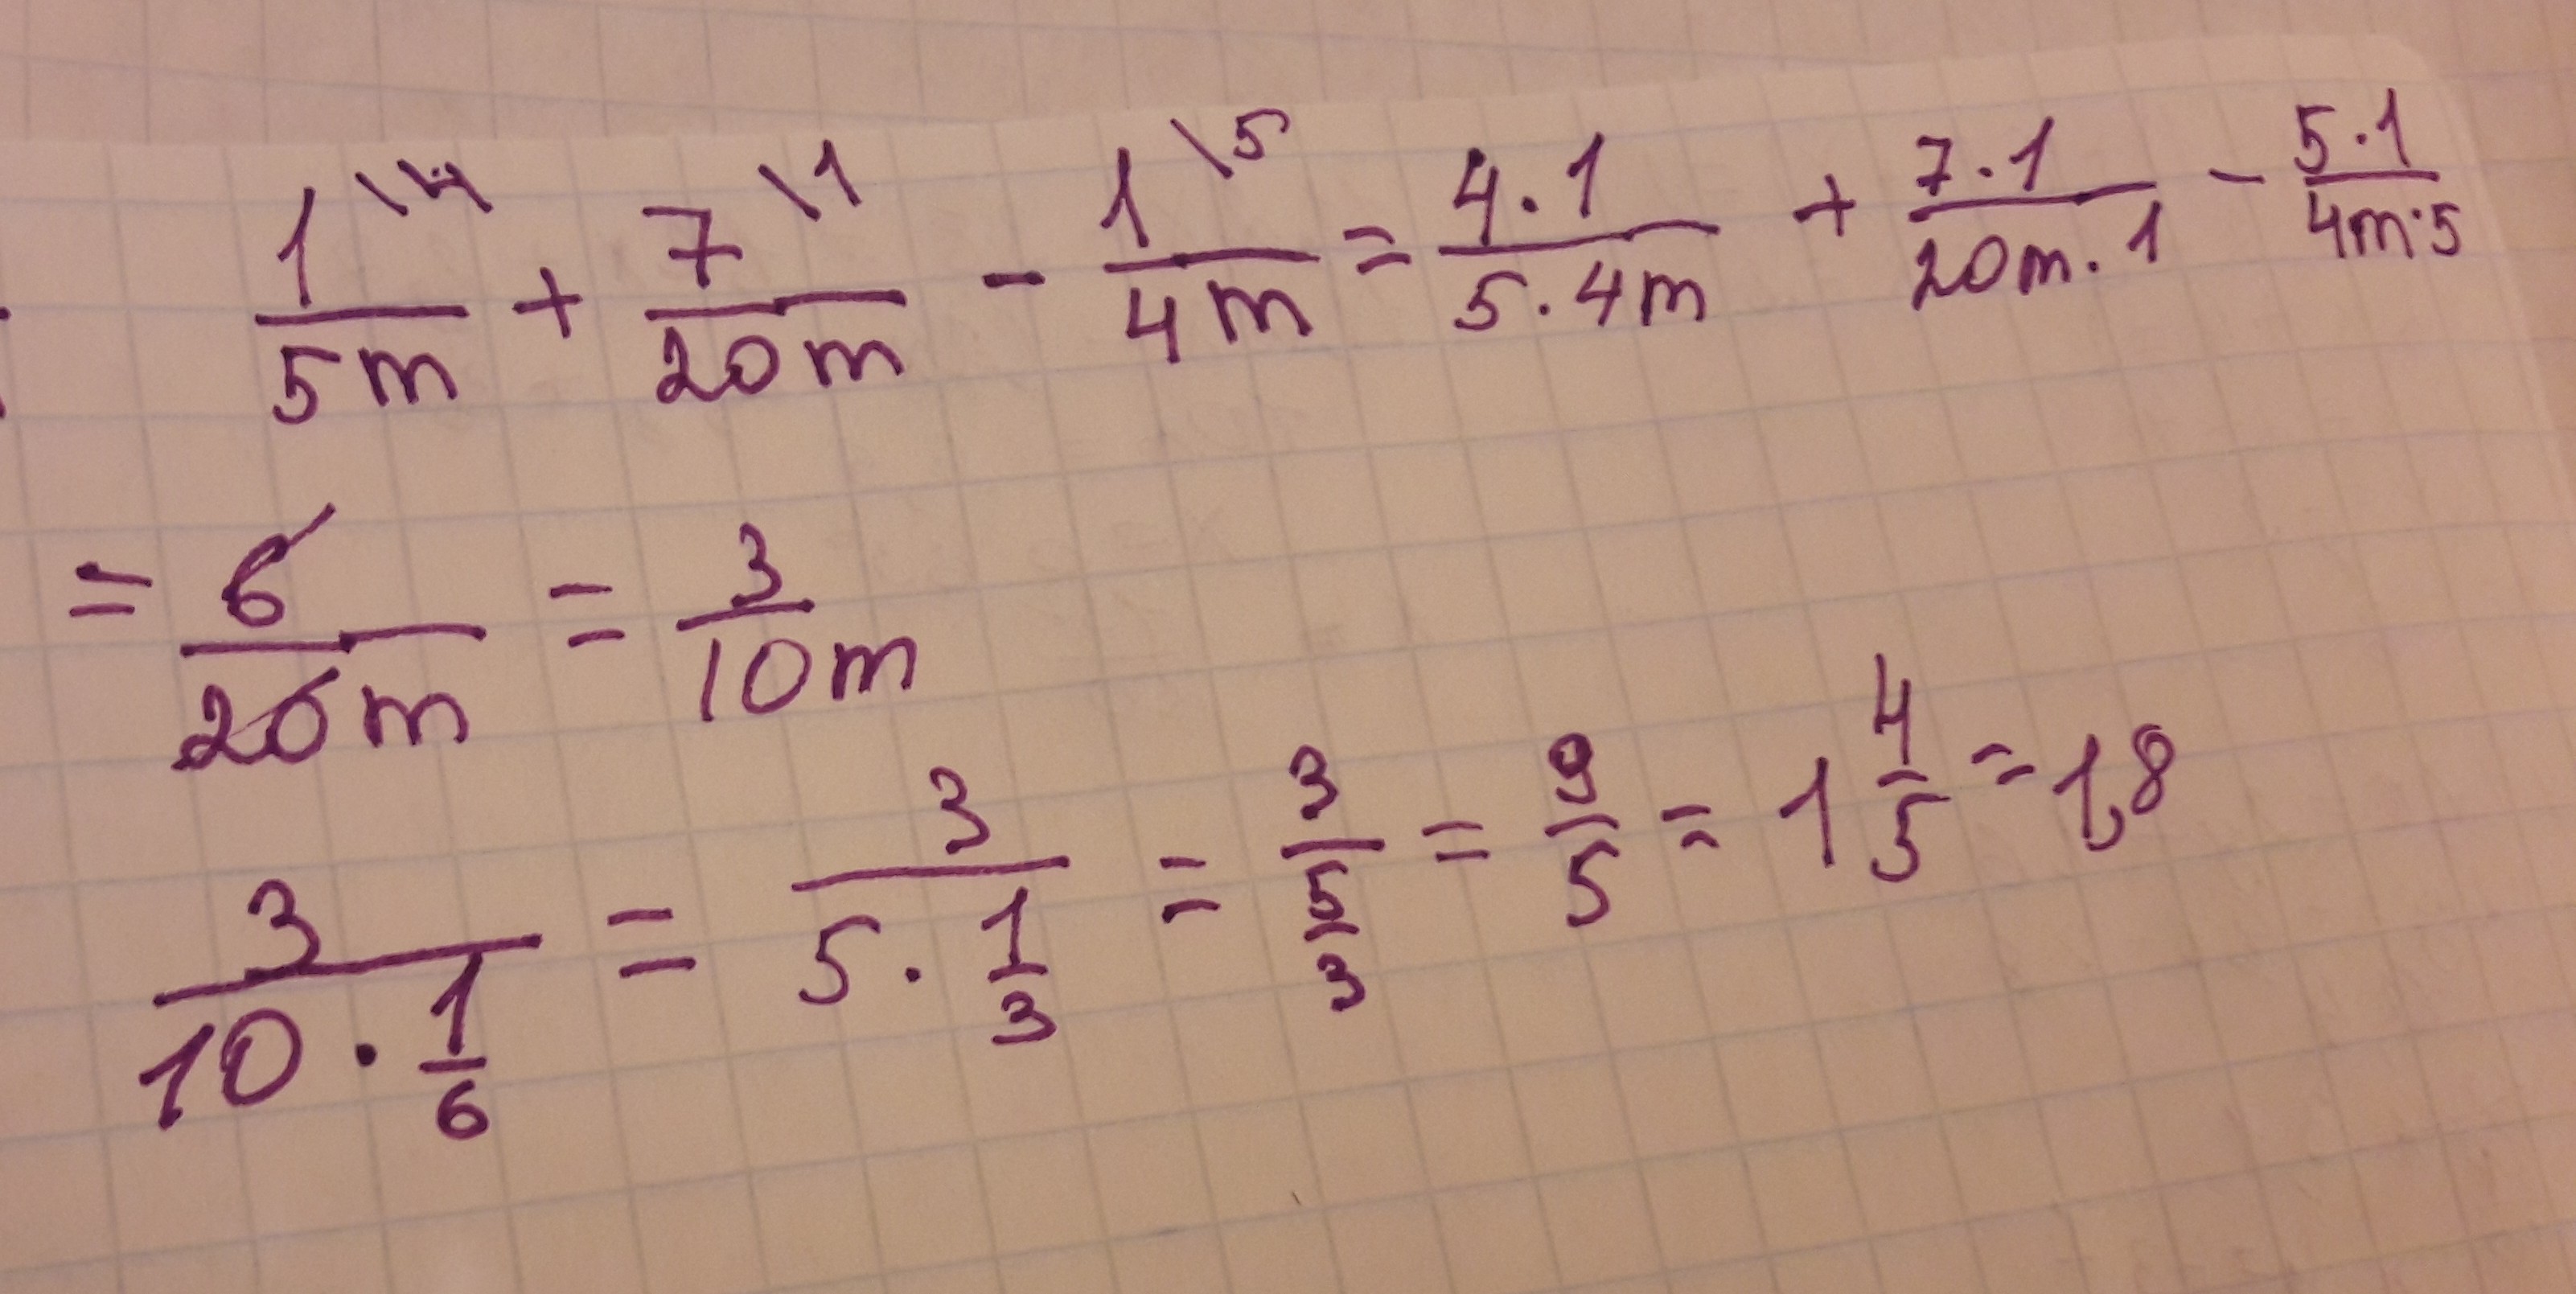 1\4/5m + 7\1/20m - 1\5/4m = 4·1/5·4m + 7·1/20m·1 - 5·1/4m·5
= 6/20m = 3/10m
3/(10·1/6) = 3/(5·1/3) = 3/(5/3) = 9/5 = 1 4/5 = 1,8